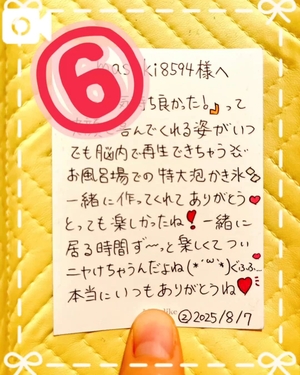 ⑥
masaki8594様へ
気持ち良かった!』って
喜んでくれる姿がいつ
でも脳内で再生できちゃう
お風呂場での特大泡かき氷
一緒に作ってくれてありがとう
とっても楽しかったね❗一緒に
居る時間ず〜っと楽しくてつい
ニヤけちゃうんだよね(*´ω`*)ぐふふ…
本当にいつもありがとうね
②2025/8/7